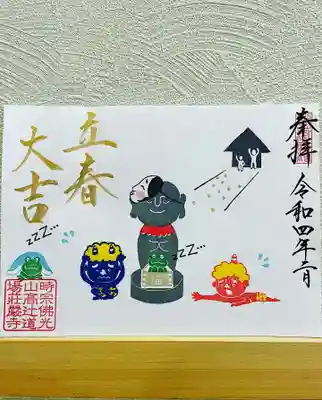 奉拝
令和四年二月
立春
大吉
zzZ...
zzZ...
時宗佛光
山高辻道
場荘厳寺